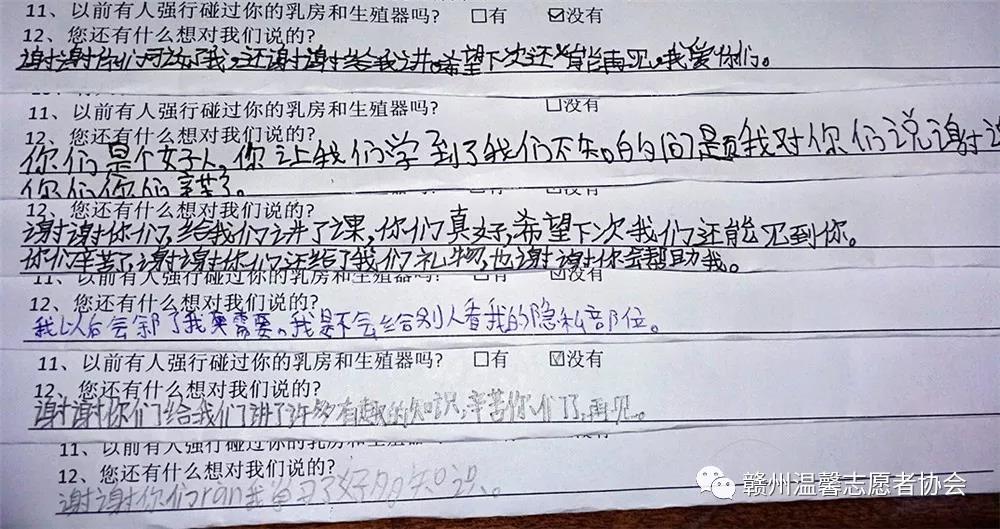 11、以前有人强行碰过你的乳房和生殖器吗？ □有 ☑没有
12、您还有什么想对我们说的?
谢谢你们,还谢谢给我讲。希望下次还能再见。我爱你们。
11、以前有人强行碰过你的乳房和生殖器吗? □没有
12、您还有什么想对我们说的?
你们是个好人。你让我们学到了我们不知的问题我对你们说谢谢
你们你们辛苦了。
12、您还有什么想对我们说的?
谢谢你们,给我们讲了课,你们真好,希望下次我们还能见到你。
你们辛苦了,谢谢你们还给了我们礼物,也谢谢你会帮助我。
11、以前有人强行碰过你的乳房和生殖器吗? □有 □没有
12、您还有什么想对我们说的?
我以后会需要。我是不会给别人看我的隐私部位。
11、以前有人强行碰过你的乳房和生殖器吗? □有 ☑没有
12、您还有什么想对我们说的?
谢谢你们给我们讲了许多有趣的知识,辛苦你们了,再见。
11、以前有人强行碰过你的乳房和生殖器吗?
12、您还有什么想对我们说的?
谢谢你们ràn我了好多知识。
赣州温馨志愿者协会